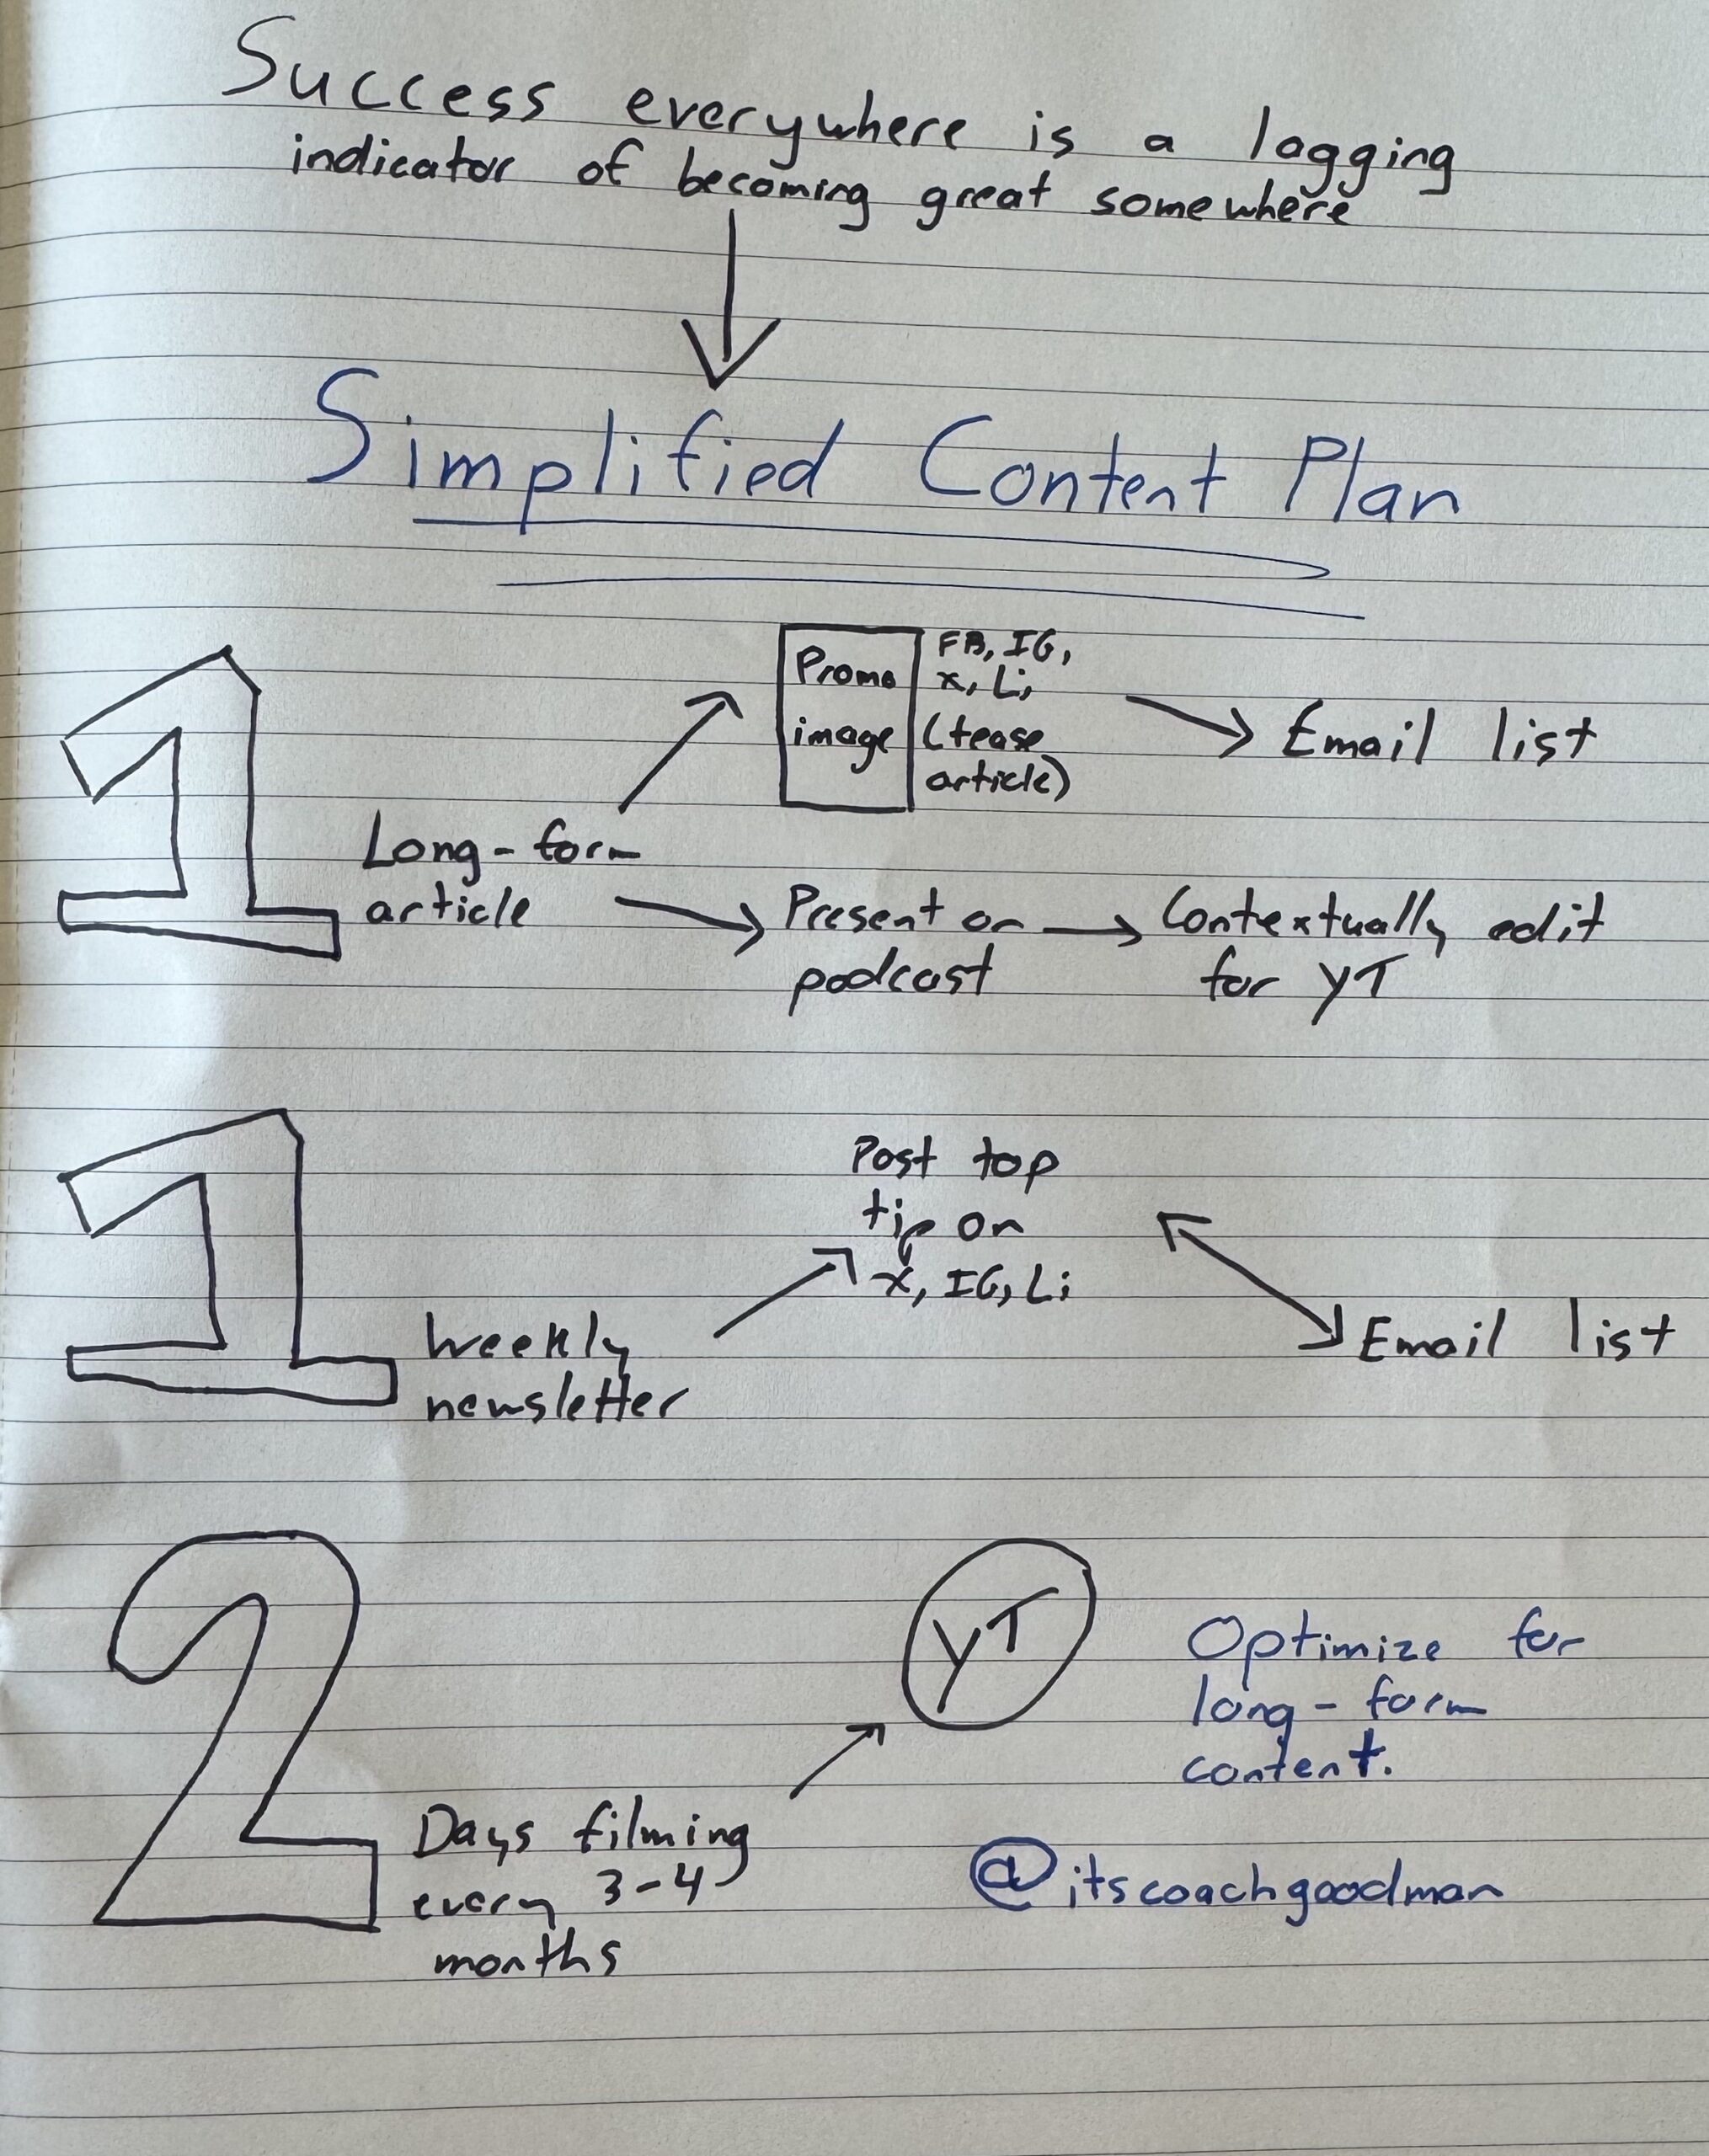 Success everywhere is a lagging
indicator of becoming great somewhere
Simplified Content Plan
1
Long-form
article
Promo
image
FB, IG,
X, Li,
(tease
article)
Email list
Present on
podcast
Contextually edit
for YT
1
Weekly
newsletter
Post top
tip on
X, IG, Li
Email list
2
Days filming
every 3-4
months
YT
Optimize for
long-form
content.
@itscoachgoodman